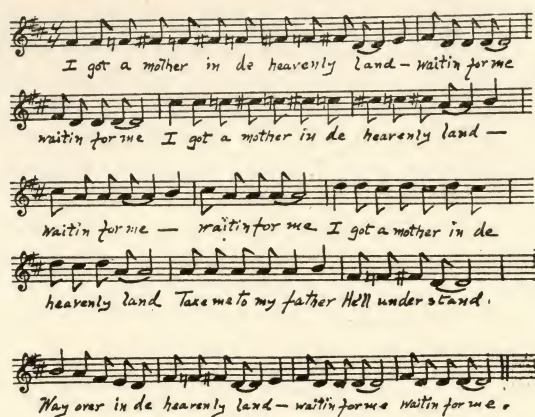 I got a mother in de heavenly land – waitin for me
waitin for me I got a mother in de heavenly land –
waitin for me – waitin for me I got a mother in de
heavenly land Take me to my father He'll under stand.
Way over in de heavenly land – waitin for me waitin for me.